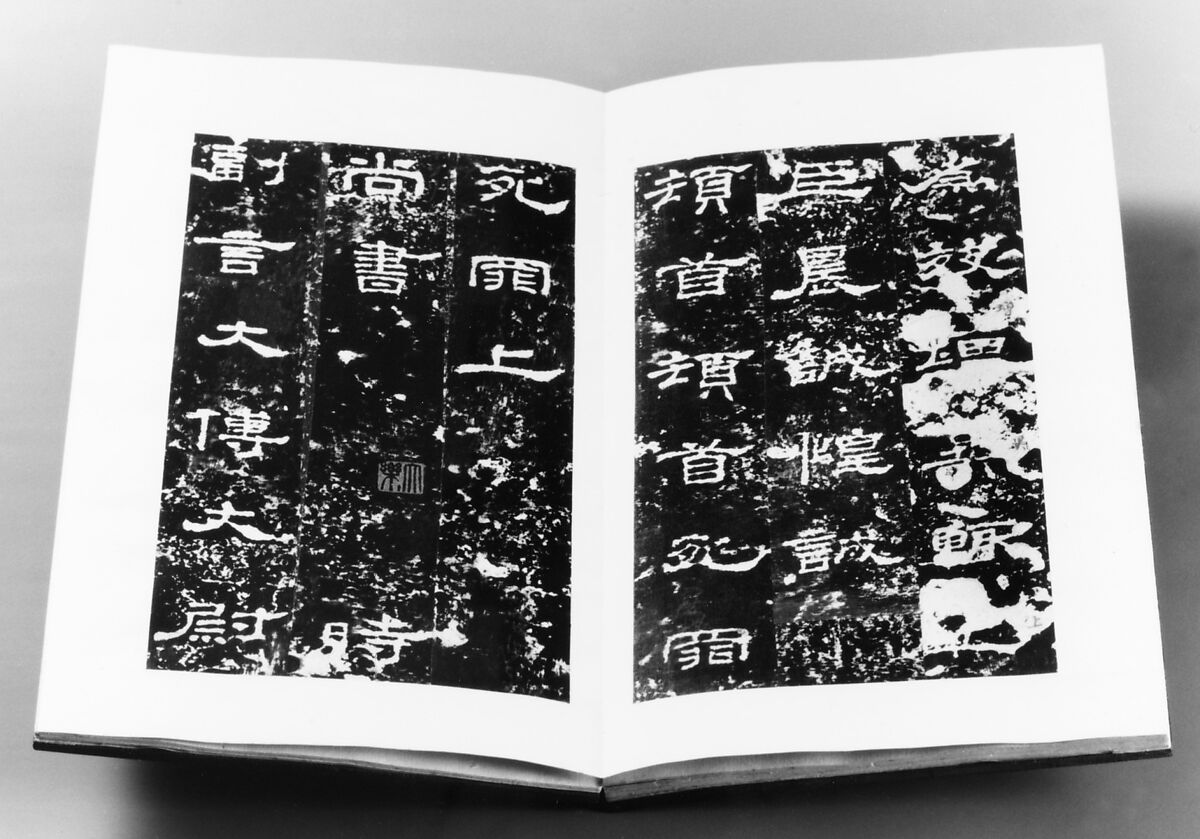 為效增異輒上
臣晨誠惶誠
頓首頓首死罪
死罪上
尚書時
副言大傅大尉